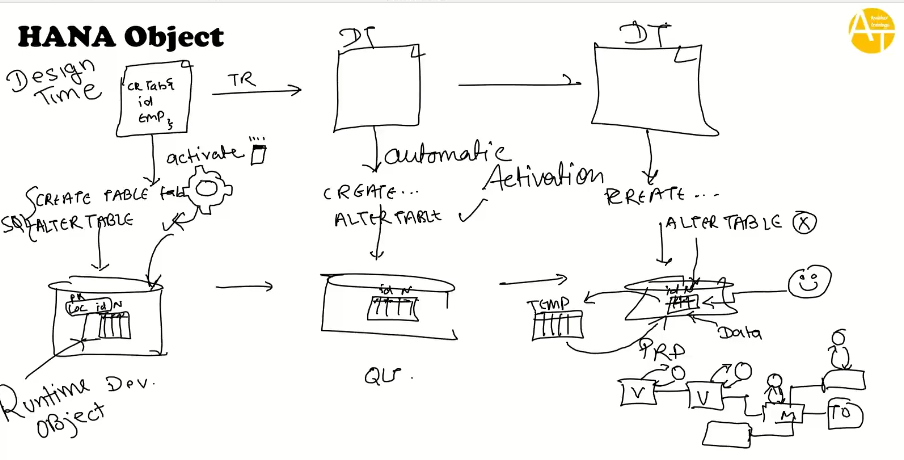 HANA Object
DT
DT
AT
Design
Time
CR Table
id
EMP
TR
activate
automatic
Activation
CREATE TABLE
SQL
ALTER TABLE
CREATE...
ALTER TABLE
CREATE...
ALTER TABLE X
PK
Loc id N
id N
id N
TEMP
Data
PRD
Runtime Dev.
Object
QU.
V
V
M
TD